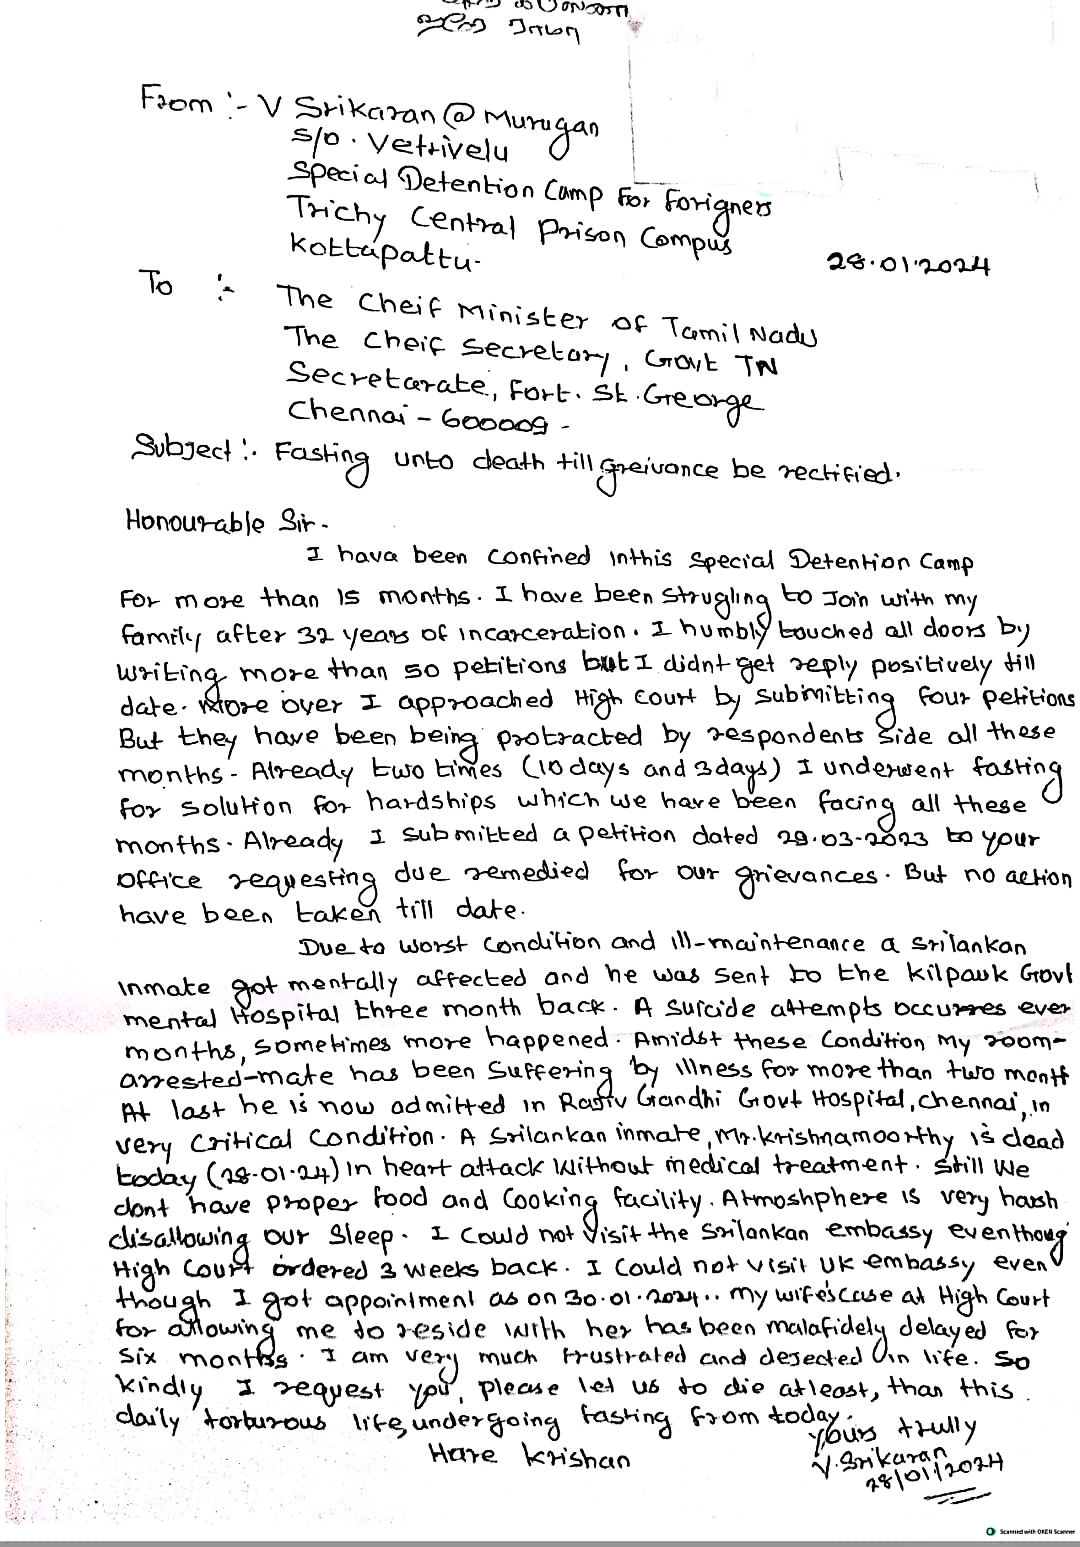 From :- V Srikaran @ Murugan
S/o. Vetrivelu
Special Detention Camp For Forigners
Trichy Central Prison Compus
Kottapattu-
28.01.2024
To :-
The Cheif Minister of Tamil Nadu
The Cheif Secretary, Govt TN
Secretarate, Fort. St. George
Chennai - 600009 -
Subject :. Fasting unto death till greivance be rectified.
Honourable Sir -
I hava been confined inthis Special Detention Camp
For more than 15 months. I have been Strugling to Join with my
family after 32 years of incarceration. I humbly touched all doors by
writing more than 50 petitions but I didnt get reply positively till
date. More over I approached High Court by submitting four petitions
But they have been being protracted by respondents side all these
months - Already two times (10 days and 3 days) I underwent fasting
for solution for hardships which we have been facing all these
months. Already I submitted a petition dated 29.03-2023 to your
Office requesting due remedied for our grievances. But no action
have been taken till date.
Due to worst condition and ill-maintenance a Srilankan
inmate got mentally affected and he was sent to the Kilpauk Govt
mental Hospital three month back. A Suicide attempts occurres ever
months, sometimes more happened. Amidst these Condition My room-
arrested-mate has been Suffering by illness for more than two month
At last he is now admitted in Rajiv Gandhi Govt Hospital, chennai, in
very critical condition. A Srilankan inmate, Mr. Krishnamoorthy is dead
today (28-01-24) in heart attack without medical treatment. Still We
dont have proper food and cooking facility. Atmoshphere is very harsh
disallowing our Sleep. I Could not visit the Srilankan embassy eventhoug
High Court ordered 3 weeks back. I Could not visit UK embassy even
though I got appointment as on 30.01.2024.. My wife's case at High Court
for allowing me to reside with her has been malafidely delayed for
six months. I am very much frustrated and dejected in life. So
kindly I request you, please let us to die atleast, than this
daily torturous life, undergoing fasting from today.
Yours trully
Hare Krishan
V. Srikaran
28/01/2024
Scanned with OKEN Scanner